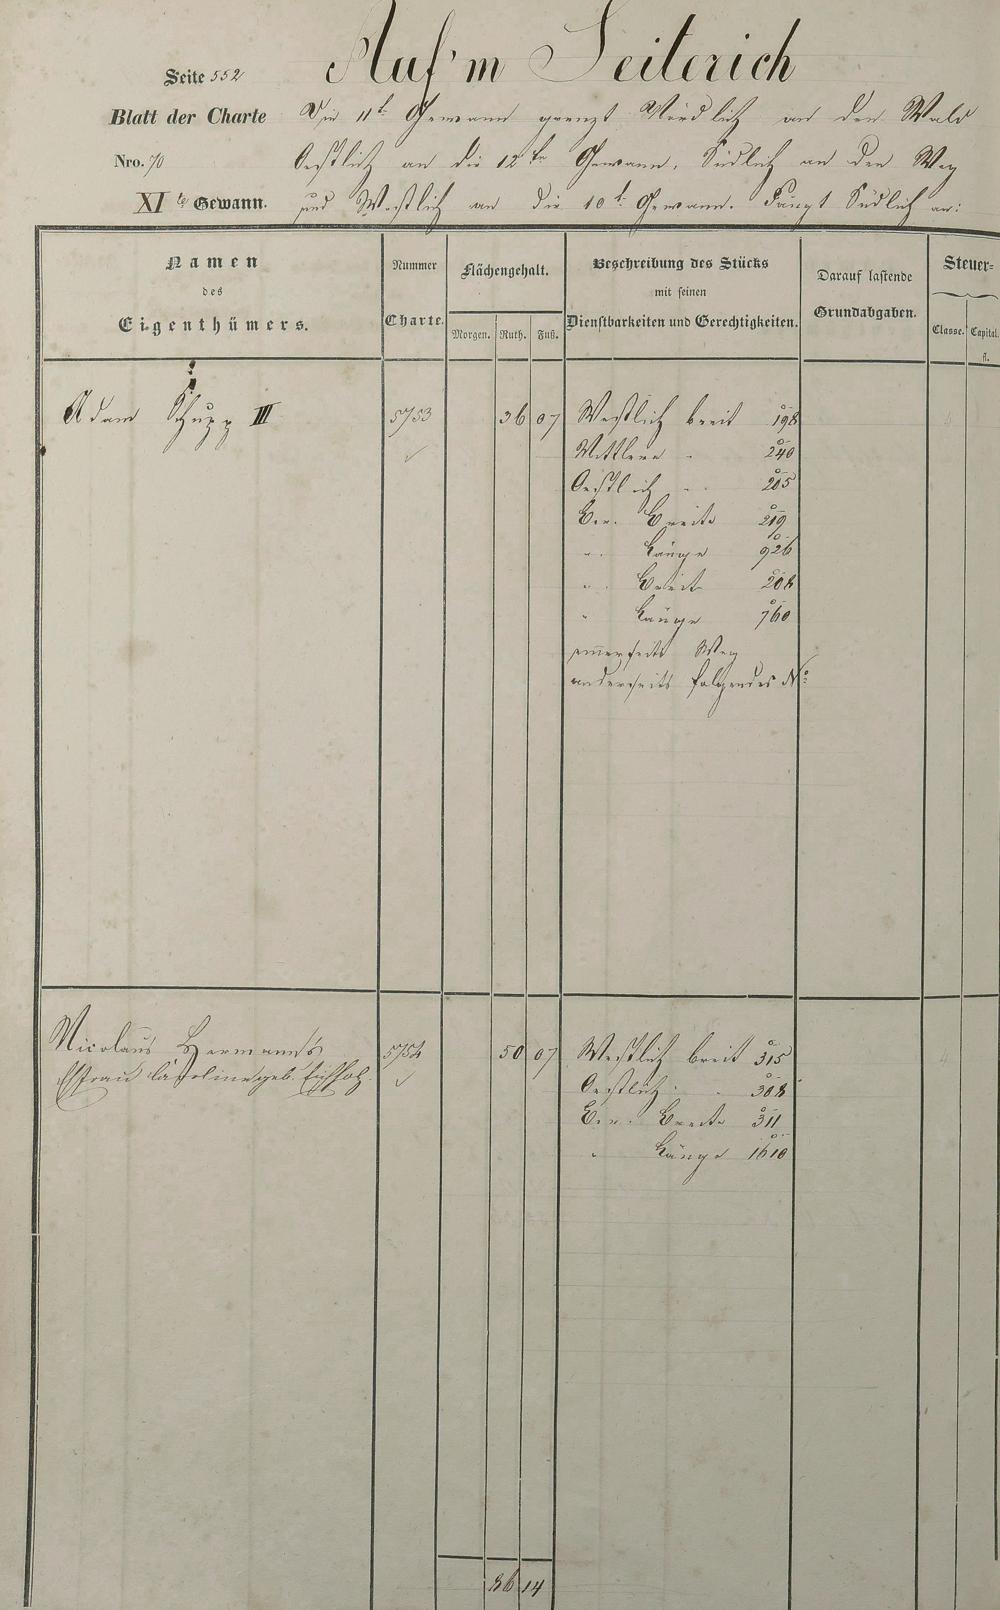 Auf'm Seiterich
Seite 552
Blatt der Charte Die 11te Gewann grenzt Nördlich an den Wald
Nro. 70 Oestlich an die 12te Gewann, Südlich an den Weg
XIte Gewann. und Westlich an die 10te Gewann. Fängt Südlich an:
Namen des Eigenthümers.
Nummer Charte.
Flächengehalt.
Morgen. Ruth. Fuß.
Beschreibung des Stücks
mit seinen
Dienstbarkeiten und Gerechtigkeiten.
Darauf lastende
Grundabgaben.
Steuer=
Classe. Capital.
fl.
Adam Schupp III 5753 36 07 Westlich breit 198
Mittlere - 240
Oestlich - - 205
Ber. Breite 219
" Länge 926
" Breite 208
" Länge 760
einerseits Weg
anderseits folgendes No:
Nicolaus Hermann's 5754 50 07 Westlich breit 315
Efrau Caroline geb. Oestlich - 308
Ber. Breite 311
" Länge 1610
86 14